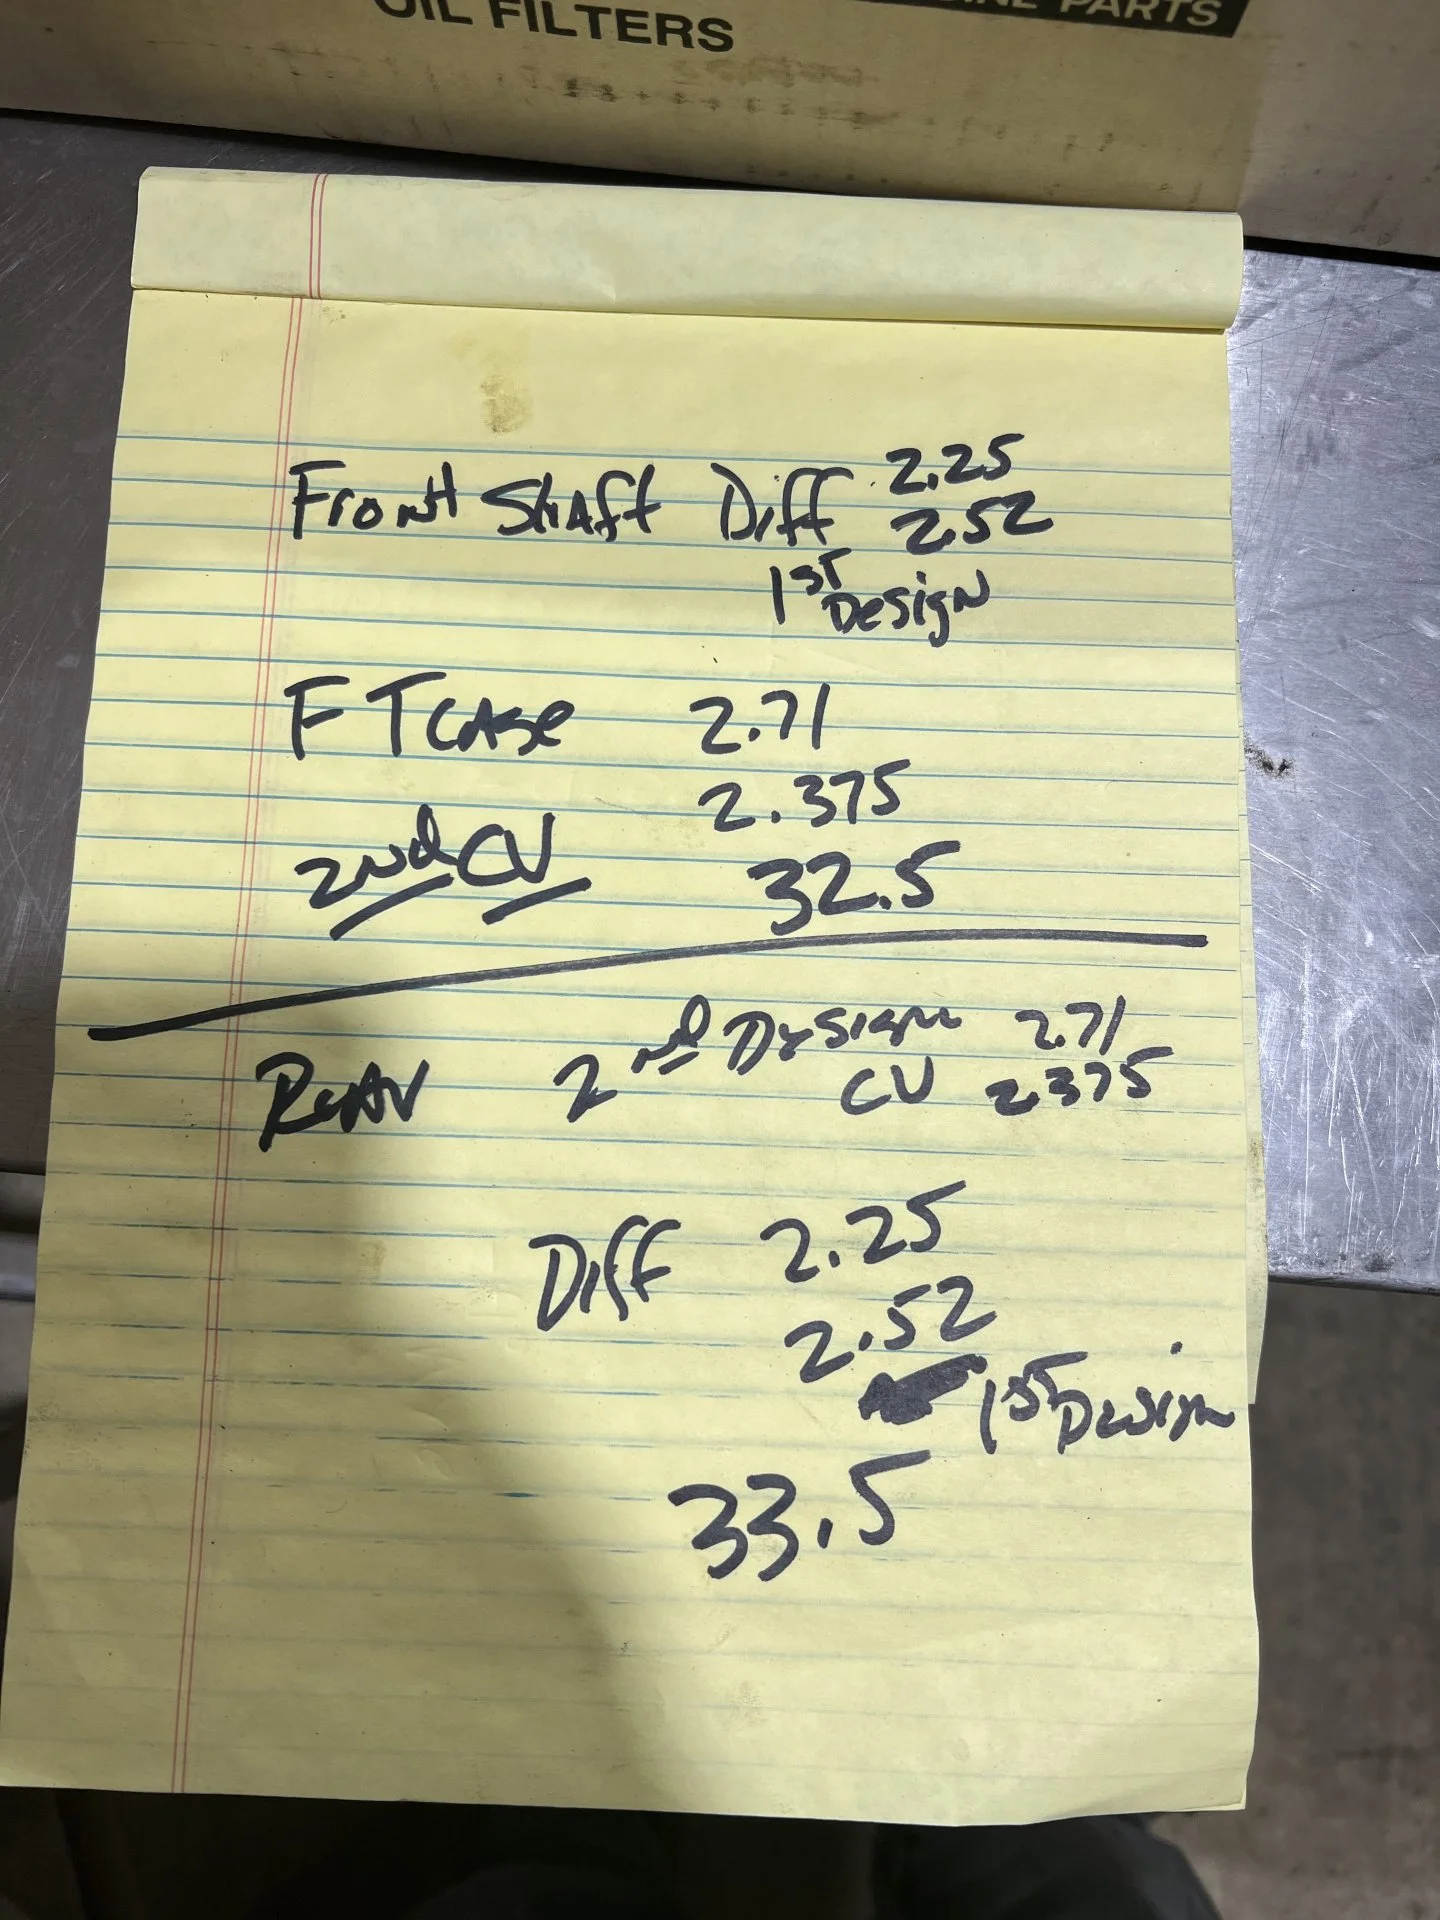 OIL FILTERS
PARTS
Front Shaft Diff 2.25
2.52
1st Design
F Tcase 2.71
2.375
2nd CV 32.5
Rear 2nd Design 2.71
CV 2.375
Diff 2.25
2.52
1st Design
33.5